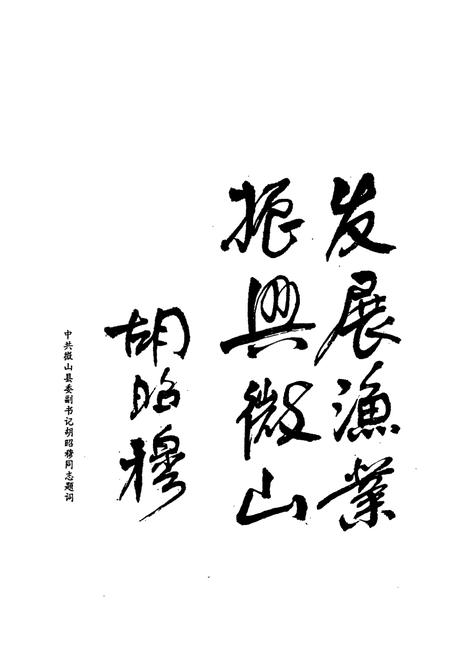 发展漁業
振興微山
胡昭穆
中共微山县委副书记胡昭穆同志题词